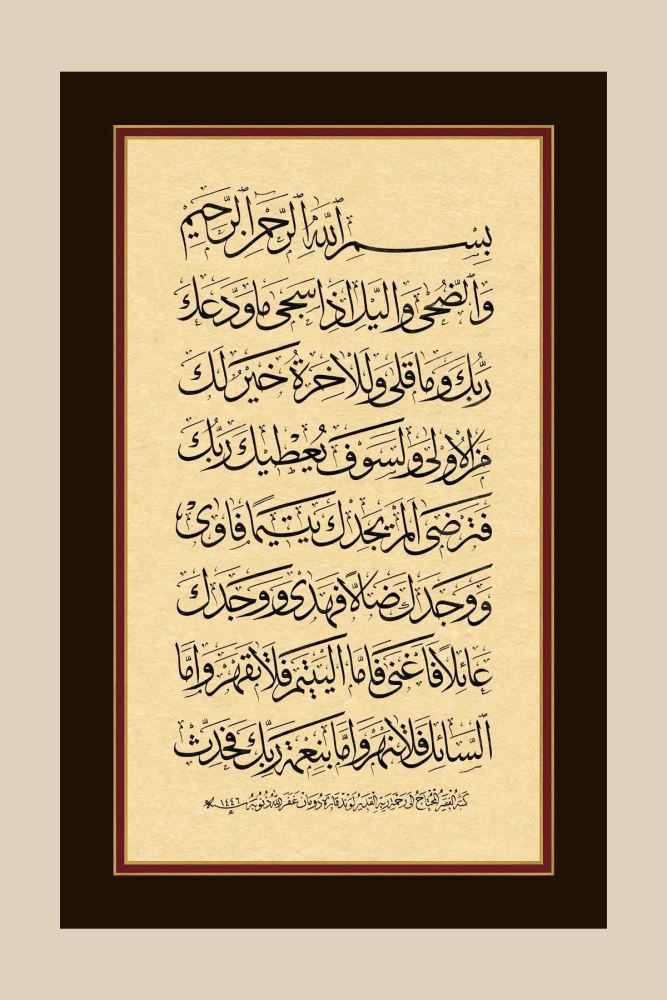 بسم الله الرحمن الرحيم
والضحى واليل اذا سجى ما ودعك
ربك وما قلى وللاخرة خير لك
من الاولى ولسوف يعطيك ربك
فترضى الم يجدك يتيما فاوى
ووجدك ضالا فهدى ووجدك
عائلا فاغنى فاما اليتيم فلا تقهر واما
السائل فلا تنهر واما بنعمة ربك فحدث
كتبه الفقير المحتاج الى رحمة ربه القدير لوند قاره دومان غفر الله ذنوبه ١٤٤٦